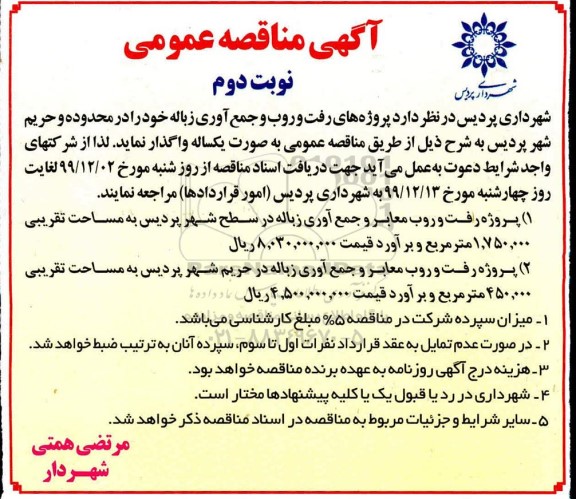 آگهی مناقصه عمومی
نوبت دوم
شهرداری پردیس
شهرداری پردیس در نظر دارد پروژه‌های رفت و روب و جمع آوری زباله خود را در محدوده و حریم
شهر پردیس به شرح ذیل از طریق مناقصه عمومی به صورت یکساله واگذار نماید. لذا از شرکتهای
واجد شرایط دعوت به‌عمل می آید جهت دریافت اسناد مناقصه از روز شنبه مورخ ۹۹/۱۲/۰۲ لغایت
روز چهارشنبه مورخ ۹۹/۱۲/۱۳ به شهرداری پردیس (امور قراردادها) مراجعه نمایند.
۱) پروژه رفت و روب معابر و جمع آوری زباله در سطح شهر پردیس به مساحت تقریبی
۱,۷۵۰,۰۰۰ متر مربع و بر آورد قیمت ۸,۰۳۰,۰۰۰,۰۰۰ ریال
۲) پروژه رفت و روب معابر و جمع آوری زباله در حریم شهر پردیس به مساحت تقریبی
۴۵۰,۰۰۰ متر مربع و بر آورد قیمت ۴,۵۰۰,۰۰۰,۰۰۰ ریال
۱ - میزان سپرده شرکت در مناقصه ۵% مبلغ کارشناسی می‌باشد.
۲ - در صورت عدم تمایل به عقد قرارداد نفرات اول تا سوم، سپرده آنان به ترتیب ضبط خواهد شد.
۳ - هزینه درج آگهی روزنامه به عهده برنده مناقصه خواهد بود.
۴ - شهرداری در رد یا قبول یک یا کلیه پیشنهادها مختار است.
۵ - سایر شرایط و جزئیات مربوط به مناقصه در اسناد مناقصه ذکر خواهد شد.
مرتضی همتی
شهردار